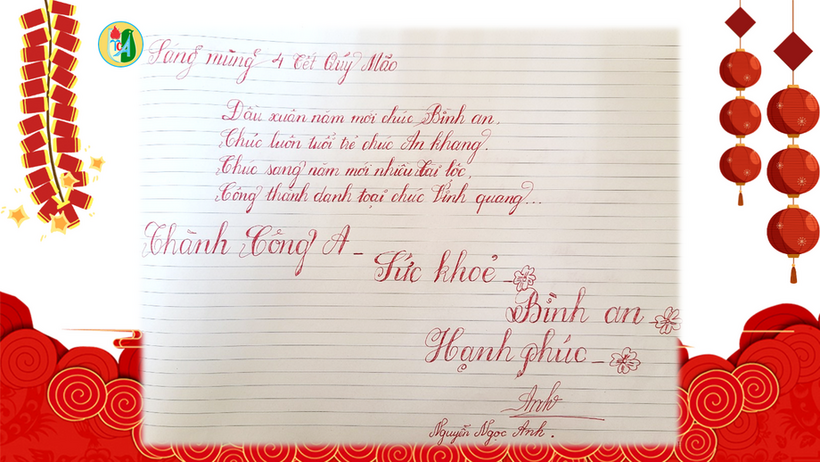 Sáng mùng 4 Tết Quý Mão
Đầu xuân năm mới chúc Bình an,
Chúc luôn tuổi trẻ chúc An khang.
Chúc sang năm mới nhiều tài lộc,
Công thành danh toại chúc Vinh quang...
Thành Công A -
Sức khoẻ -
Bình an -
Hạnh phúc -
Anh
Nguyễn Ngọc Anh.